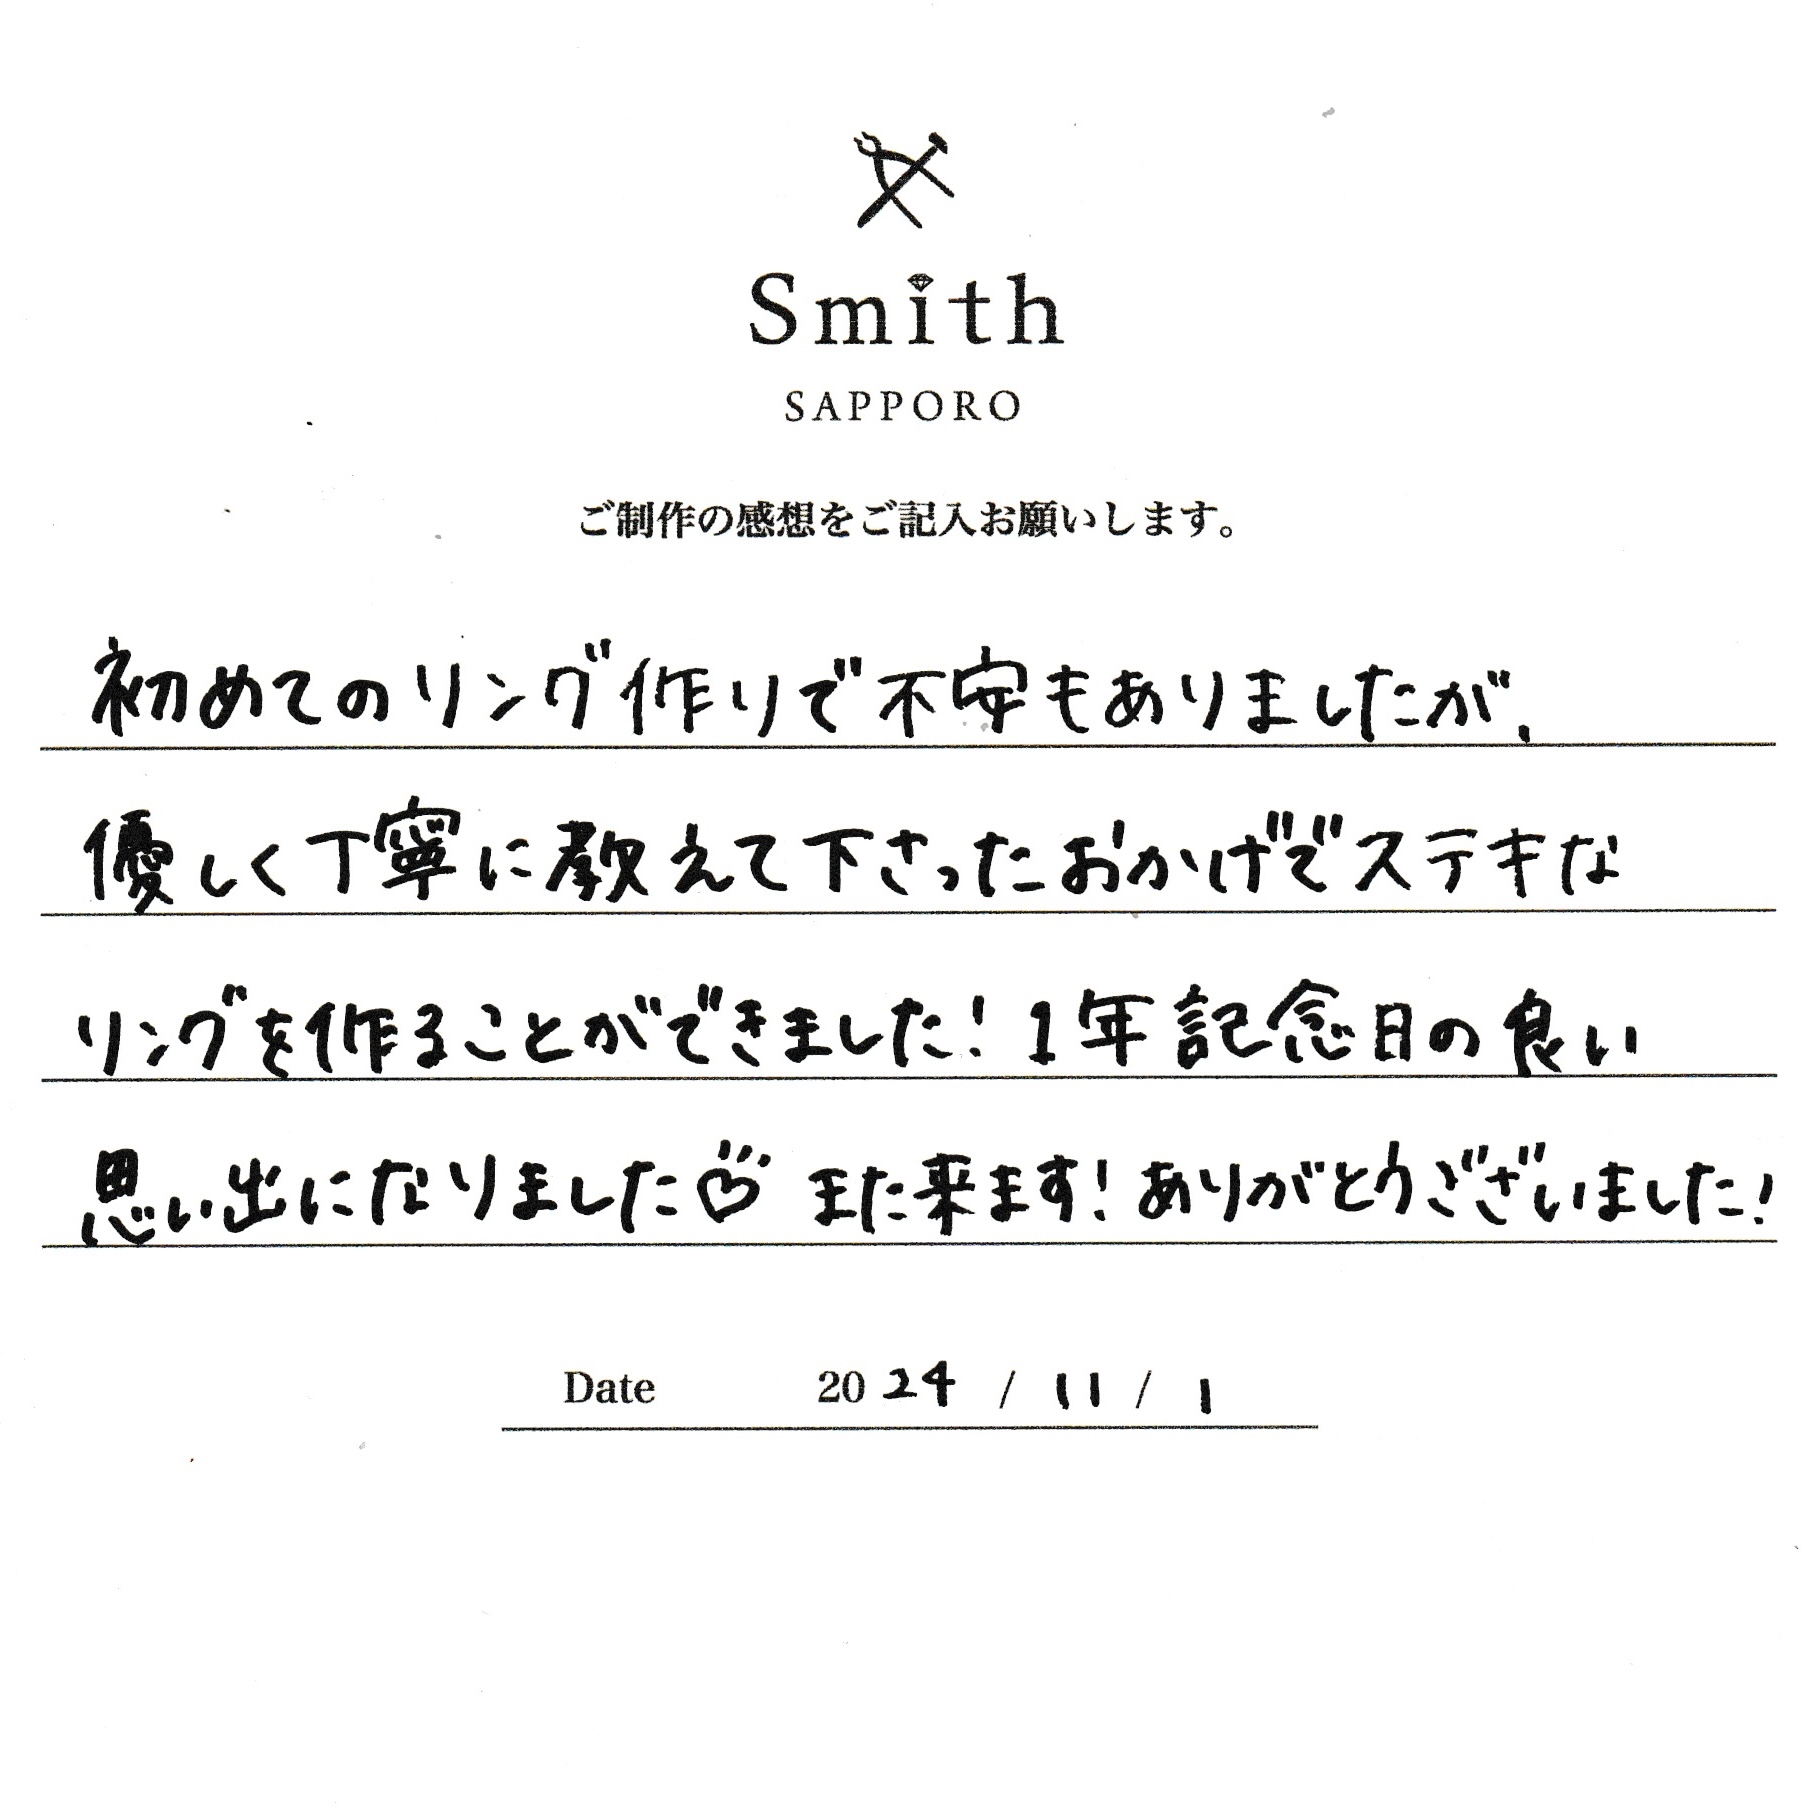 Smith
SAPPORO
ご制作の感想をご記入お願いします。
初めてのリング作りで不安もありましたが、
優しく丁寧に教えて下さったおかげでステキな
リングを作ることができました！1年記念日の良い
思い出になりました♡ また来ます！ありがとうございました！
Date 2024 / 11 / 1